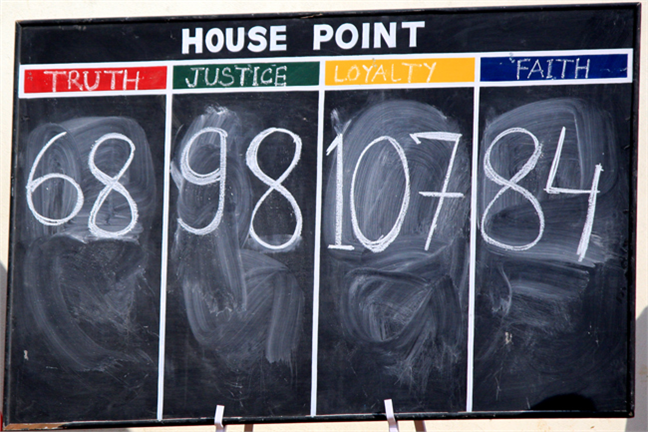 HOUSE POINT
TRUTH JUSTICE LOYALTY FAITH
68 98 107 84